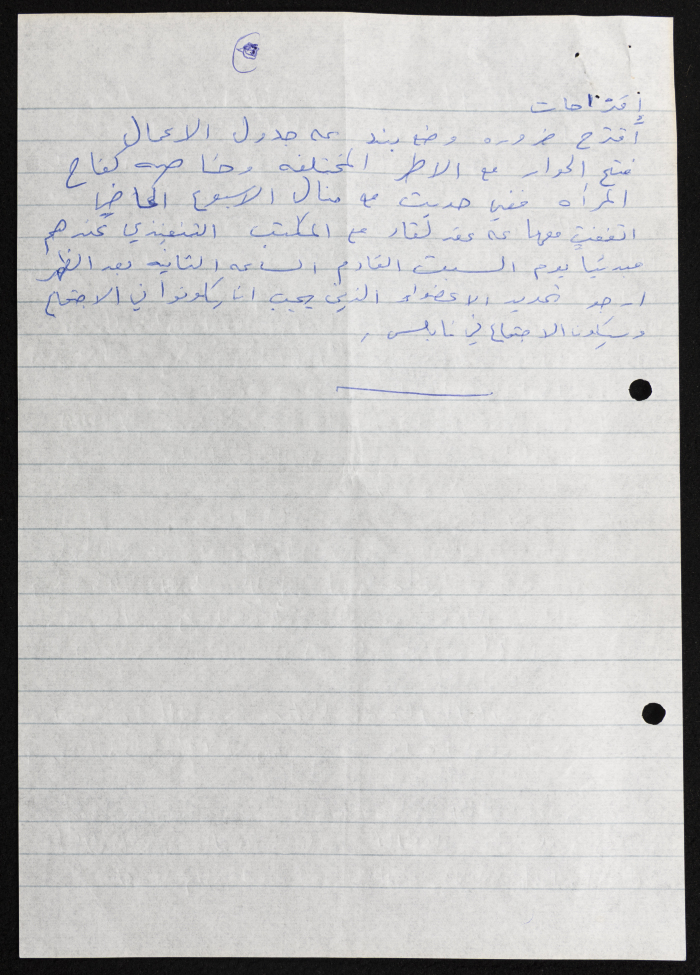 إقتراحات
أقترح ضروره وضع بند عن جدول الاعمال
فتح الحوار مع الاطر المختلفه وخاصه كفاح
المرأه ففي حديث مع منال الاسبوع الماضي
اتفقت معها عن عقد لقاء مع المكتب التنفيذي عندهم
مبدئيا يوم السبت القادم الساعه الثانيه بعد الظهر
ارجو تحديد الاعضاء الذين يجب ان يكونوا في الاجتماع
وسيكون الاجتماع في نابلس .